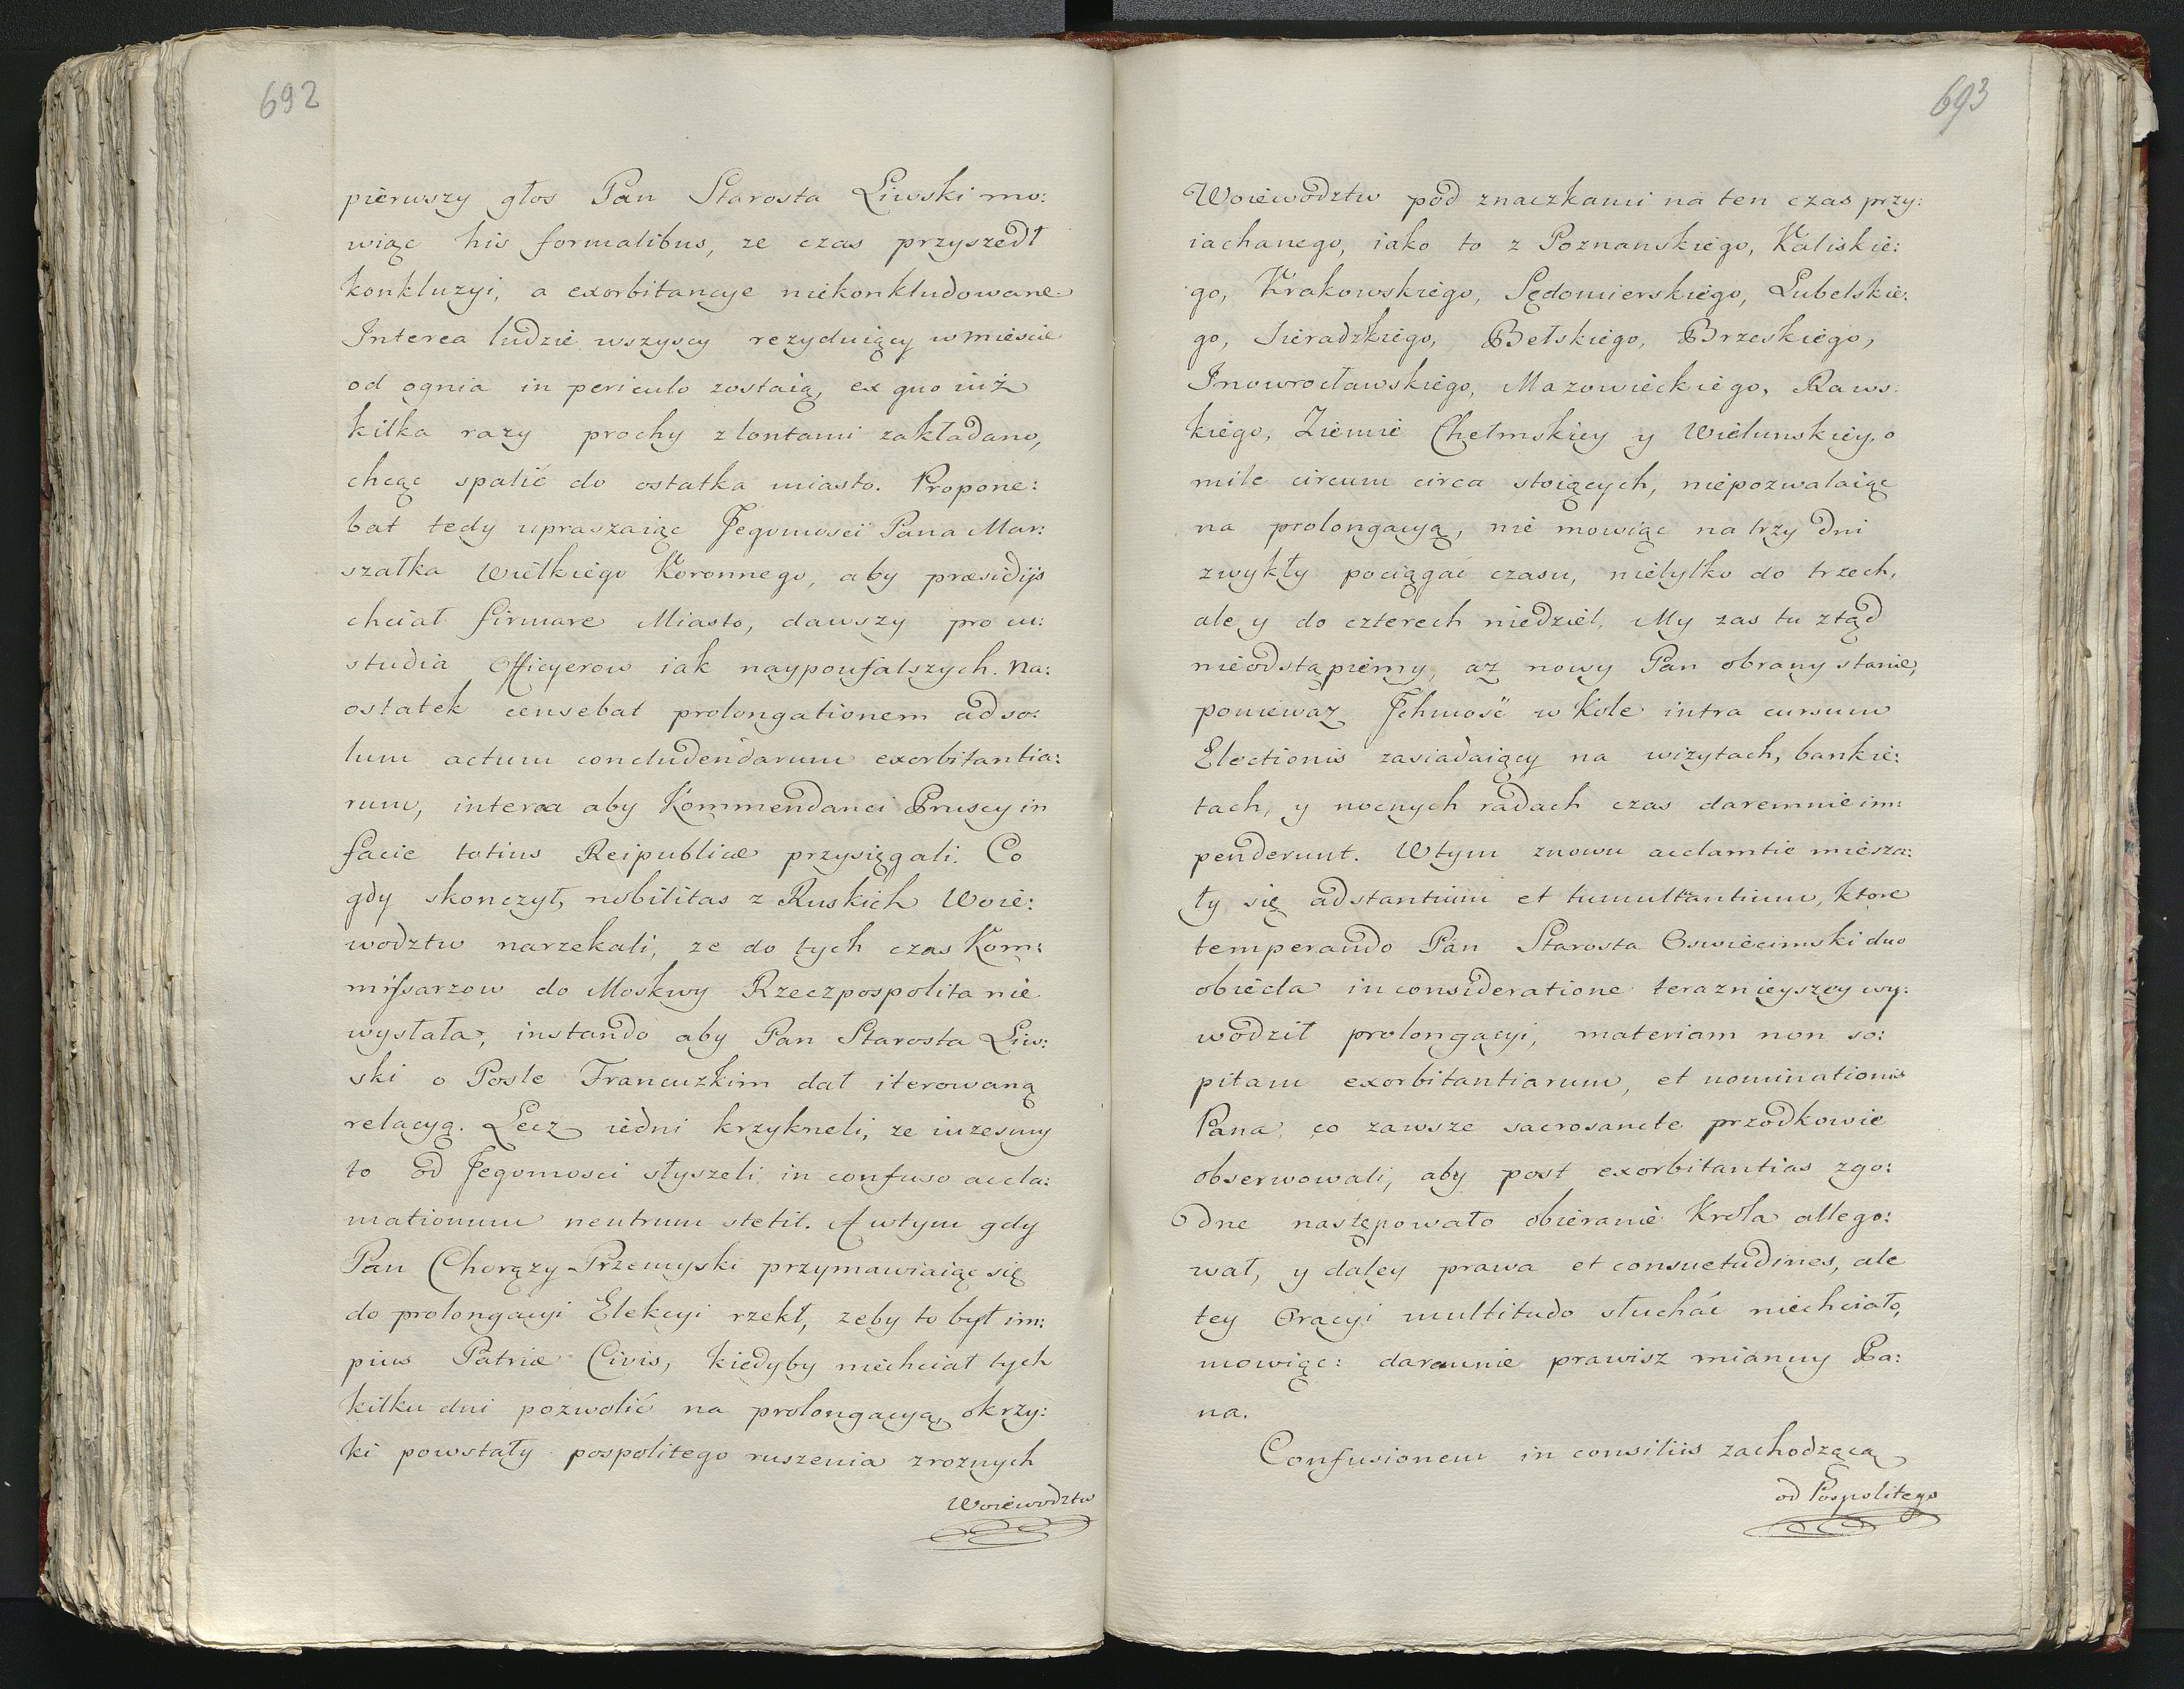 692
pierwszy głos Pan Starosta Liwski mo:
wiąc his formalibus, ze czas przyszedł
konkluzyi, a exorbitancye niekonkludowane
Interea ludzie wszyscy rezyduiący w miescie
od ognia in periculo zostaią, ex quo iuż
kilka razy prochy z lontami zakładano,
chcąc spalić do ostatka miasto. Propone:
bat tedy upraszaiąc Jegomosci Pana Mar:
szałka Wielkiego Koronnego, aby præsidijs
chciał firmare Miasto, dawszy pro cu:
studia Officyerow iak naypoufalszych. Na:
ostatek censebat prolongationem ad so:
lum actum concludendarum exorbitantia:
rum, interea aby Kommendanci Pruscy in
facie totius Reipublicæ przysięgali. Co
gdy skonczył, nobilitas z Ruskich Woie:
wodztw narzekali, ze do tych czas Kom:
missarzow do Moskwy Rzeczpospolita nie
wysłała, instando aby Pan Starosta Liw:
ski o Posle Francuzkim dał iterowaną
relacyą. Lecz iedni krzykneli, ze iuzesmy
to od Jegomosci słyszeli, in confuso accla:
mationum neutrum stetit. A wtym gdy
Pan Chorązy Przemyski przymawiaiąc się
do prolongacyi Elekcyi rzekł, zeby to był im:
pius Patriæ Civis, kiedyby niechciał tych
kilku dni pozwolić na prolongacyą, okrzy:
ki powstały pospolitego ruszenia z roznych
Woiewodztw
693
Woiewodztw pod znaczkami na ten czas przy:
iachanego, iako to z Poznanskiego, Kaliskie:
go, Krakowskiego, Sędomierskiego, Lubelskie:
go, Sieradzkiego, Bełskiego, Brzeskiego,
Inowrocławskiego, Mazowieckiego, Raws:
kiego, Ziemie Chełmskiey y Wielunskiey, o
mile circum circa stoiących, niepozwalaiąc
na prolongacyą, nie mowiąc na trzy dni
zwykły pociągać czasu, nietylko do trzech,
ale y do czterech niedziel. My zas tu ztąd
nieodstąpiemy, az nowy Pan obrany stanie,
poniewaz Jchmosć w Kole intra cursum
Electionis zasiadaiący na wizytach, bankie:
tach, y nocnych radach czas daremnie im:
penderunt. Wtym znowu acclamtie miesza:
ły się adstantium et tumultantium, ktore
temperando Pan Starosta Oswiecimski duo
obiecta in consideratione teraznieyszey wy:
wodził prolongacyi, materiam non so:
pitam exorbitantiarum, et nominationis
Pana, co zawsze sacrosancte przodkowie
obserwowali, aby post exorbitantias zgo:
dne następowało obieranie Krola allego:
wał, y daley prawa et consuetudines, ale
tey Oracyi multitudo słuchać niechciało,
mowiąc: daremnie prawisz mianuy Pa:
na.
Confusionem in consiliis zachodzącą
od Pospolitego